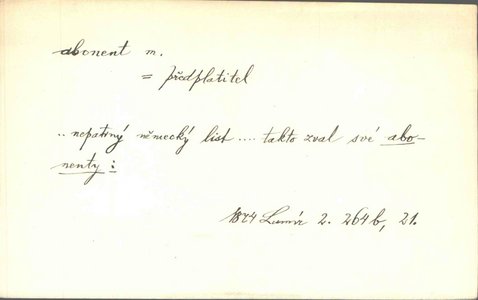 abonent m.
= předplatitel
.. nepatrný německý list .... takto zval své abo-
nenty:
1874 Lumír 2. 264b, 21.